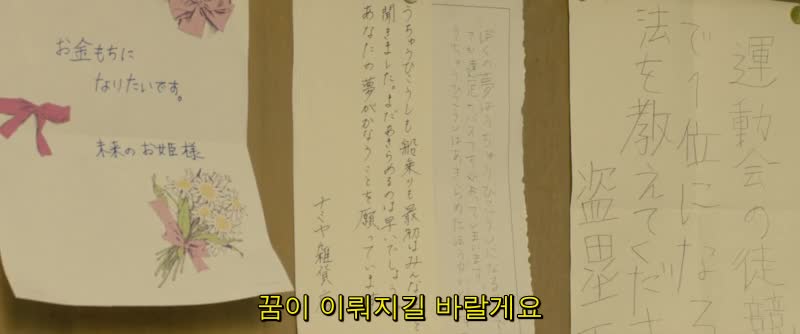 お金もちに
なりたいです。
未来のお姫様
うちゅうひこうしも船乗りも最初はみんな
聞きました。まだあきらめるのは早いでしょう
あなたの夢がかなうことを願っていま
ナミヤ雑貨
ぼくの夢はうちゅうひこうしになる
運動会の徒競
で1位になる
法を教えてくださ
盗塁
꿈이 이뤄지길 바랄게요